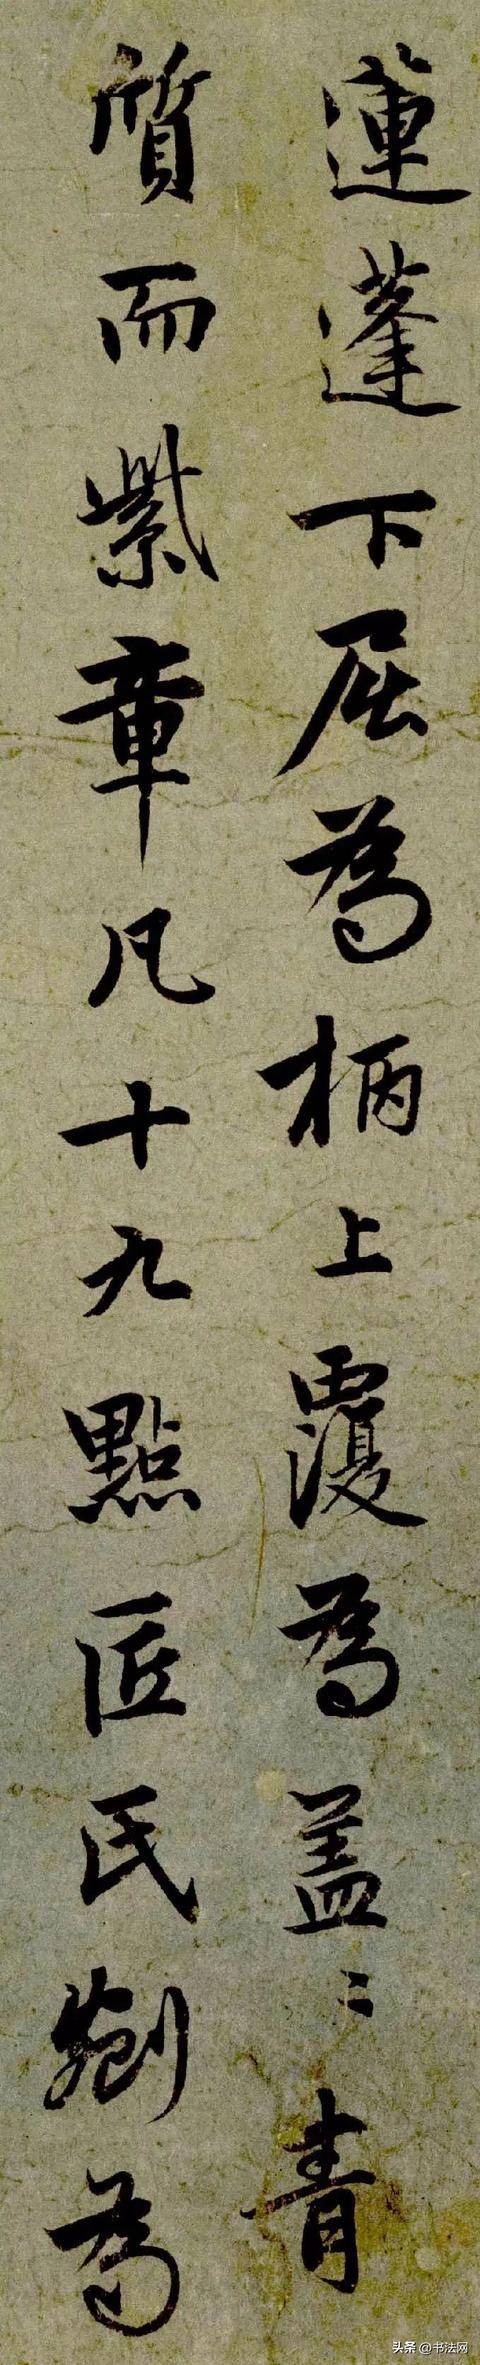 蓮蓬下屈為柄上覆為盖〻青
質而紫章凡十九點匠氏刳為
头条 @书法网